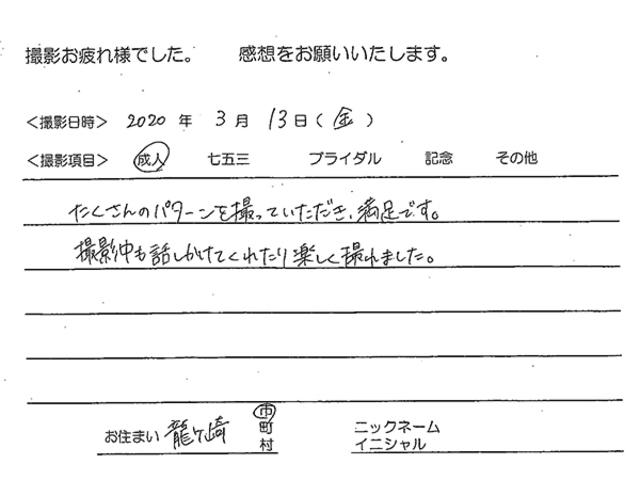 撮影お疲れ様でした。 感想をお願いいたします。
＜撮影日時＞ 2020 年 3 月 13 日 ( 金 )
＜撮影項目＞ 成人 七五三 ブライダル 記念 その他
たくさんのパターンを撮っていただき、満足です。
撮影中も話しかけてくれたり楽しく撮れました。
お住まい 龍ヶ崎 市
町
村
ニックネーム
イニシャル